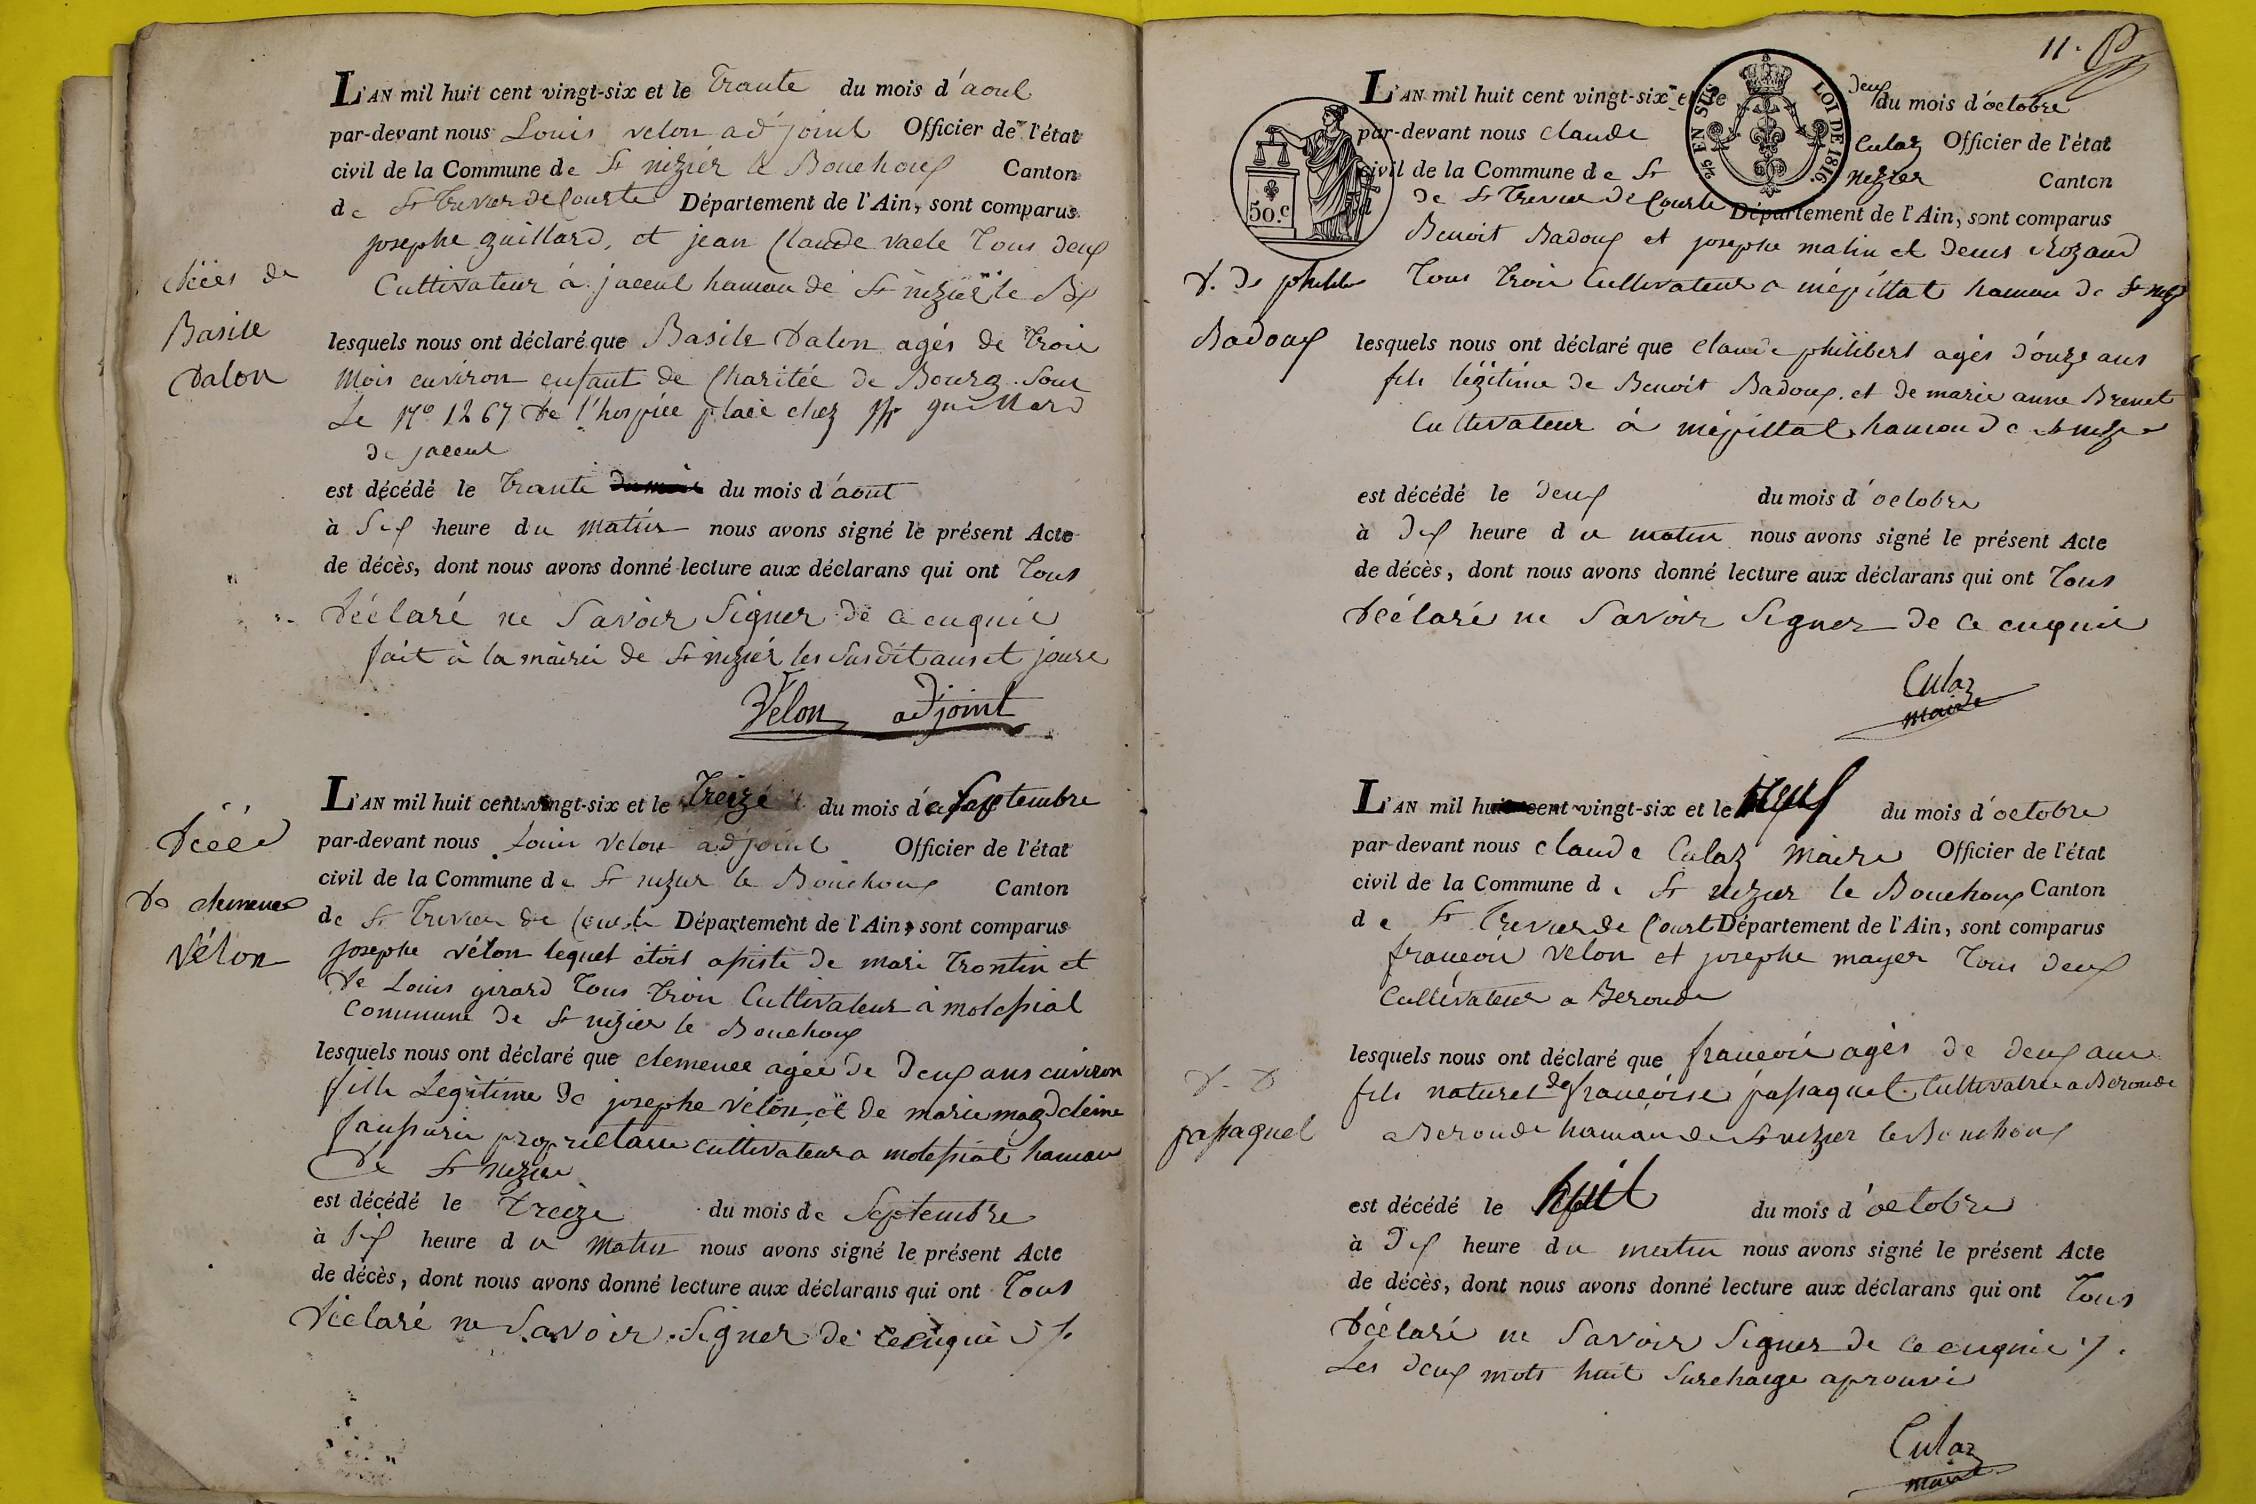 L'AN mil huit cent vingt-six et le Trante du mois d'aout
par-devant nous Louis velon adjoint Officier de l'état
civil de la Commune de St nizier le Bouchoux Canton
de St Trevier de Courte Département de l'Ain, sont comparus
josephe guillard, et jean Claude vaele Tous deux
Cultivateur á jaceul hamau de St nizier le Bx
décès de
Basile
Dalon
lesquels nous ont déclaré que Basile Dalon agés de Trois
Mois environ enfant de Charitée de Bourg. Sous
Le No 1267 de l'hospice placé chez jph guillard
de jaceul
est décédé le Trante du mois d'aout
à Six heure du matin nous avons signé le présent Acte
de décès, dont nous avons donné lecture aux déclarans qui ont Tous
Déclaré ne Savoir Signer de ce enquie
fait à la mairie de St nizier les Susdit ans et joure
Velon adjoint
Décée
De clemence
Vélon
L'AN mil huit cent vingt-six et le Treize du mois de Septembre
par-devant nous Louis Velon adjoint Officier de l'état
civil de la Commune de St nizier le Bouchoux Canton
de St Trevier de Courte Département de l'Ain, sont comparus
josephe vélon lequel étois apisté de mari Trontin et
De Louis girard Tous Trois Cultivateur à molepiat
Commune de St nizier le Bouchoux
lesquels nous ont déclaré que clemence agée de Deux ans environ
fille Legitime de josephe Vélon et de marie magdeleine
proprietaire cultivateur a molepiat hamau
De St nizier
est décédé le Treize du mois de Septembre
à Six heure du Matin nous avons signé le présent Acte
de décès, dont nous avons donné lecture aux déclarans qui ont Tous
Déclaré ne Savoir Signer de ce enquie
11.
L'AN mil huit cent vingt-six et le deux du mois d'octobre
par-devant nous claude Culaz Officier de l'état
civil de la Commune de St nizier Canton
de St Trevier de Courte Département de l'Ain, sont comparus
Benoit Badoux et josephe matin et denis Rozand
Tous Trois Cultivateur a mépillat hamau de St niz
50.c
5/10 EN SUS LOI DE 1816.
D. de philib
Badoux
lesquels nous ont déclaré que claude philibert agés d'onze ans
fils légitime de Benoit Badoux et de marie anne Brevet
Cultivateur á mépillat hamau de St nizier
est décédé le deux du mois d'octobre
à Dix heure du matin nous avons signé le présent Acte
de décès, dont nous avons donné lecture aux déclarans qui ont Tous
Déclaré ne Savoir Signer de ce enquie
Culaz
maire
L'AN mil huit cent vingt-six et le du mois d'octobre
par-devant nous claude Culaz Maire Officier de l'état
civil de la Commune de St nizier le Bouchoux Canton
de St Trevier de Court Département de l'Ain, sont comparus
françois Velon et josephe mayer Tous deux
Cultivateur a Beronde
D. D
papaquel
lesquels nous ont déclaré que françois agés de deux ans
fils naturel de françoise papaquet Cultivatrice a Beronde
a Beronde hamau de St nizier le Bouchoux
est décédé le huit du mois d'octobre
à Dix heure du matin nous avons signé le présent Acte
de décès, dont nous avons donné lecture aux déclarans qui ont Tous
Déclaré ne Savoir Signer de ce enquie
Les deux mots huit Surcharge aprouvé
Culaz
maire